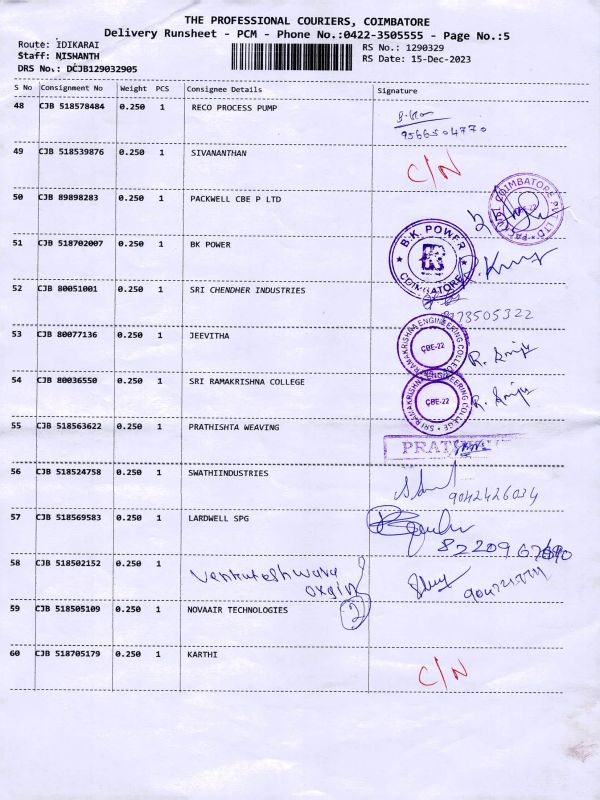 THE PROFESSIONAL COURIERS, COIMBATORE
Delivery Runsheet - PCM - Phone No.:0422-3505555 - Page No.:5
Route: IDIKARAI
RS No.: 1290329
Staff: NISHANTH
RS Date: 15-Dec-2023
DRS No.: DCJB129032905
S No Consignment No Weight PCS Consignee Details Signature
48 CJB 518578484 0.250 1 RECO PROCESS PUMP
9566504770
49 CJB 518539876 0.250 1 SIVANANTHAN C/N
50 CJB 89898283 0.250 1 PACKWELL CBE P LTD
51 CJB 518702007 0.250 1 BK POWER B.K. POWER COIMBATORE
52 CJB 80051001 0.250 1 SRI CHENDHER INDUSTRIES
53 CJB 80077136 0.250 1 JEEVITHA SRI RAMAKRISHNA ENGINEERING COLLEGE CBE-22
54 CJB 80036550 0.250 1 SRI RAMAKRISHNA COLLEGE SRI RAMAKRISHNA ENGINEERING COLLEGE CBE-22
55 CJB 518563622 0.250 1 PRATHISHTA WEAVING
56 CJB 518524758 0.250 1 SWATHIINDUSTRIES
9042426034
57 CJB 518569583 0.250 1 LARDWELL SPG
58 CJB 518502152 0.250 1 Venkateshwara
59 CJB 518505109 0.250 1 NOVAAIR TECHNOLOGIES 2
60 CJB 518705179 0.250 1 KARTHI C/N